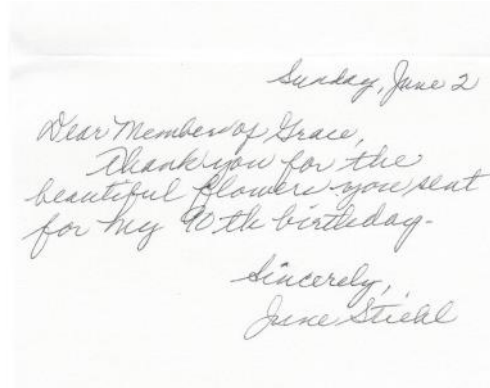 Sunday, June 2
Dear Members of Grace,
Thank you for the
beautiful flowers you sent
for my 90th birthday.
Sincerely,
June Stiehl